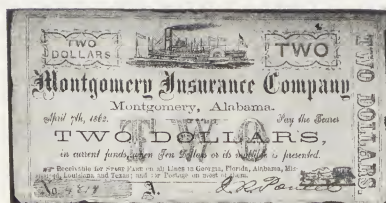 TWO
DOLLARS
TWO
Montgomery Insurance Company
Montgomery, Alabama.
April 7th, 1862. Pay the Bearer
TWO DOLLARS,
in current funds, when Ten Dollars or its multiple is presented.
Receivable for STAGE FARE on all Lines in Georgia, Florida, Alabama, Mis-
Louisiana and Texas; and for Postage on most of them.
No. A.
TWO DOLLARS.
TWO